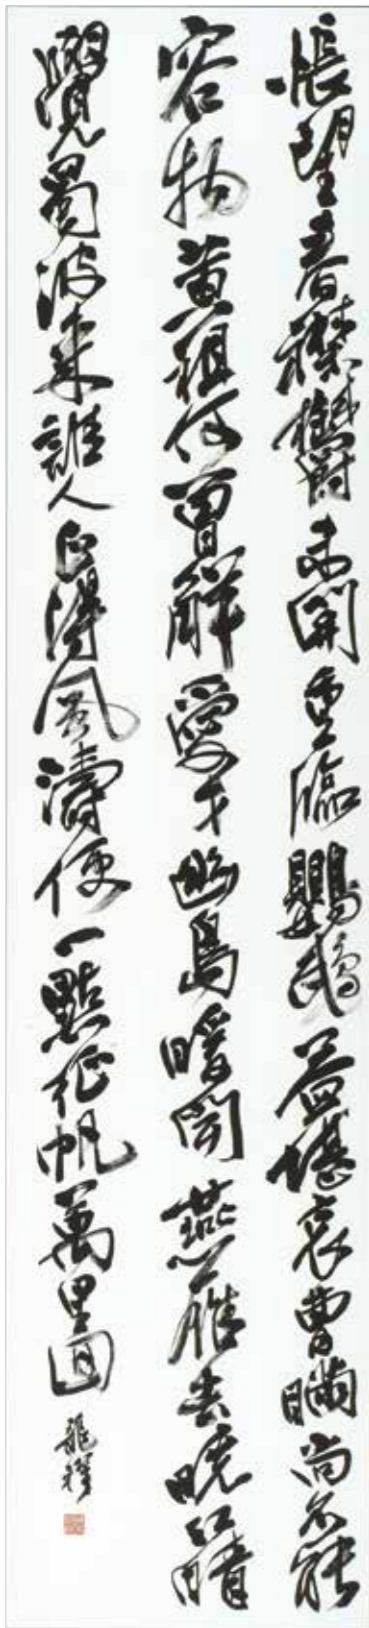 悵望春襟欝未開重臨鸚鵡益堪哀曹瞞尚不能
容物黄祖何曾解愛才幽島暖聞燕雁去曉江晴
覺蜀波來誰人正得風濤便一點征帆萬里回 龍